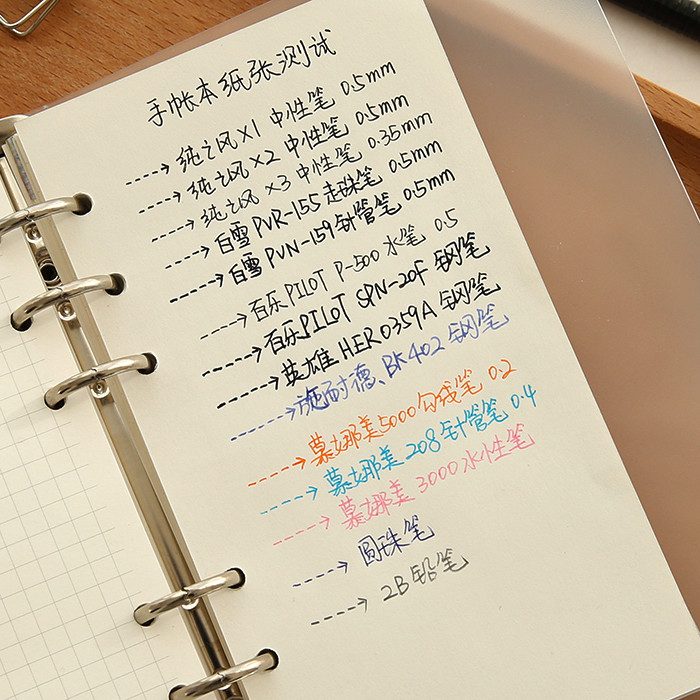 手帐本纸张测试
----→ 纯之风X1 中性笔 0.5mm
----→ 纯之风X2 中性笔 0.5mm
----→ 纯之风X3 中性笔 0.35mm
----→ 白雪 PVR-155 走珠笔 0.5mm
----→ 白雪 PVN-159 针管笔 0.5mm
----→ 百乐 PILOT P-500 水笔 0.5
----→ 百乐 PILOT SPN-20F 钢笔
----→ 英雄 HERO359A 钢笔
----→ 施耐德、BK402 钢笔
----→ 慕娜美5000勾线笔 0.2
----→ 慕娜美 208针管笔 0.4
----→ 慕娜美 3000水性笔
----→ 圆珠笔
----→ 2B铅笔